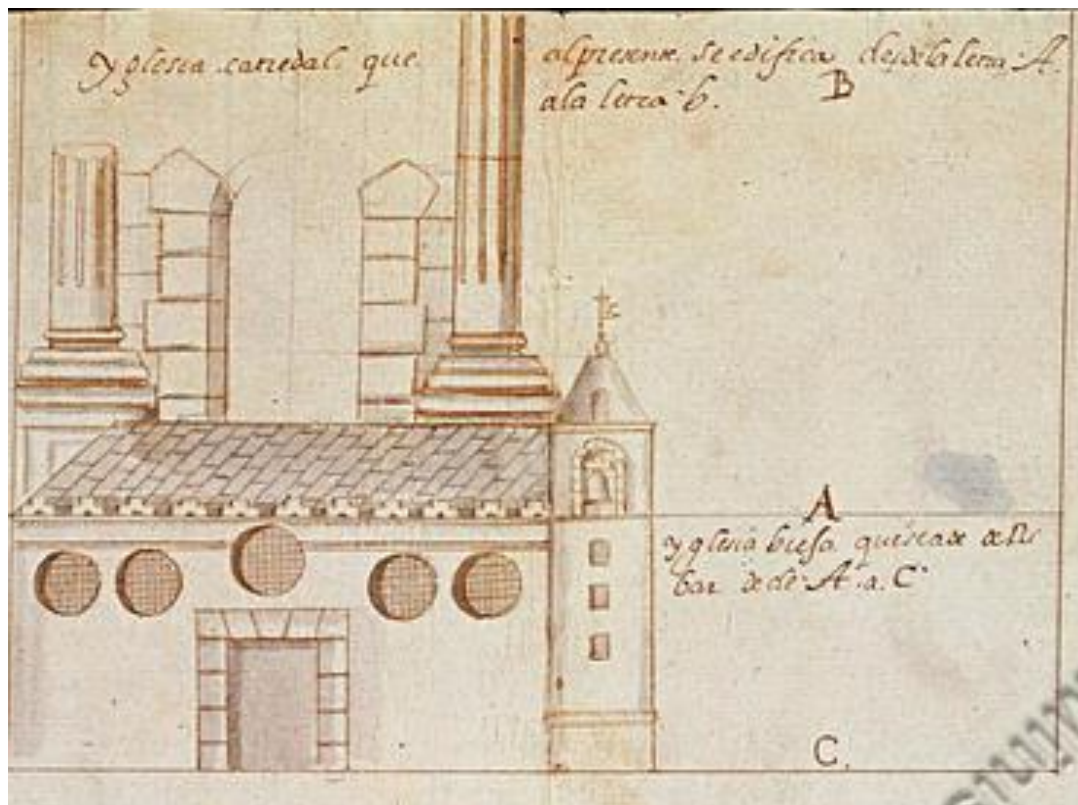 yglesia catredal que alpresente se edifica desde la letra A.
B
ala letra b.
A
yglesia biexa que se a de deRi
bar desde A. a. C
C.